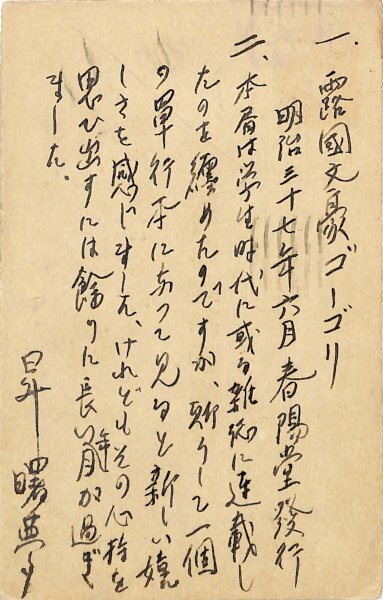 一、露國文豪、ゴーゴリ
明治三十七年六月春陽堂發行
二、本屑は学生時代に或る雑誌に連載し
たのを纏めたのですが、斯うして一個
の単行本になつて見ると新しい嬉
しさを感じました、けれどもその心持を
思ひ出すには餘りに長い年月が過ぎ
ました。
昇曙夢